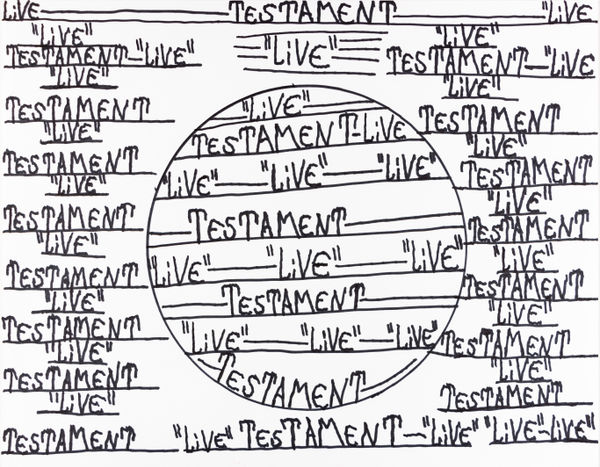 LiVE TESTAMENT "LiVE
"LiVE"
TESTAMENT-"LiVE"
"LiVE"
TESTAMENT
"LiVE"
TESTAMENT
"LiVE"
TESTAMENT
"LiVE"
TESTAMENT
"LiVE"
TESTAMENT
"LiVE"
TESTAMENT
"LiVE"
"LiVE"
"LiVE"
TESTAMENT-LiVE
"LiVE" "LiVE" "LiVE"
TESTAMENT
"LiVE" "LiVE" "LiVE"
TESTAMENT
"LiVE" "LiVE" "LiVE"
TESTAMENT
"LiVE"
TESTAMENT-"LiVE
"LiVE"
TESTAMENT
"LiVE"
TESTAMENT
"LiVE"
TESTAMENT
"LiVE"
TESTAMENT
"LiVE"
TESTAMENT
"LiVE"
TESTAMENT
TESTAMENT "LiVE" TESTAMENT-"LiVE" "LiVE"-LiVE"